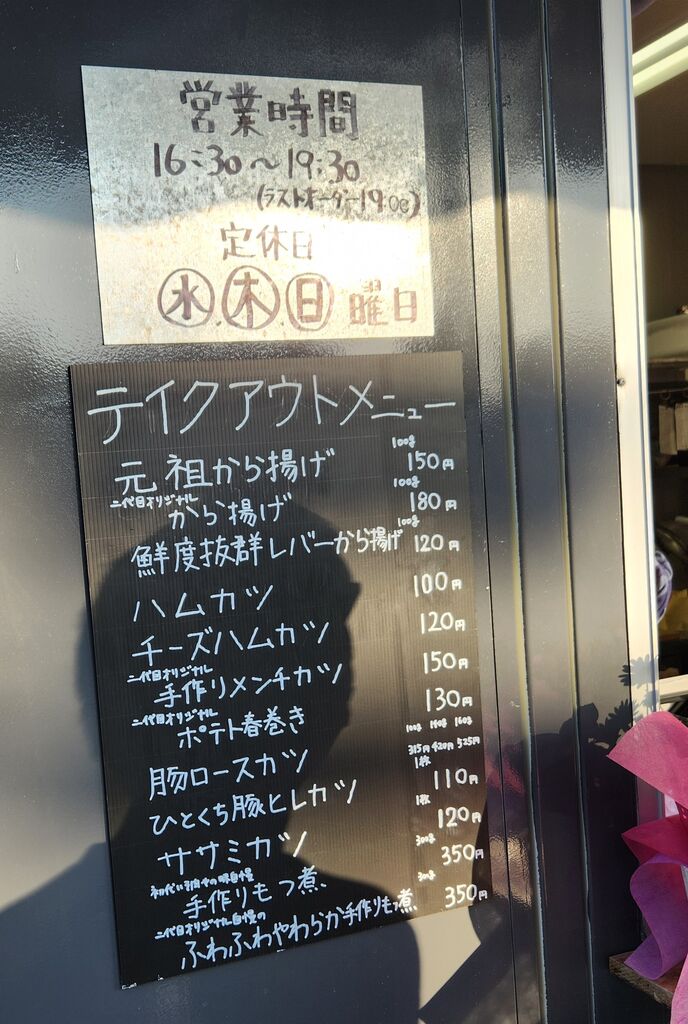 営業時間
16:30～19:30
(ラストオーダー19:00)
定休日
水 木 日 曜日
テイクアウトメニュー
元祖から揚げ 100g 150円
二代目オリジナル
から揚げ 100g 180円
鮮度抜群レバーから揚げ 100g 120円
ハムカツ 100円
チーズハムカツ 120円
二代目オリジナル
手作りメンチカツ 150円
二代目オリジナル
ポテト春巻き 130円
豚ロースカツ 100g 140g 160g 315円 420円 525円
ひとくち豚ヒレカツ 1枚 110円
ササミカツ 1枚 120円
手作りもつ煮 300g 350円
二代目オリジナル自慢の
ふわふわやわらか手作りもつ煮 300g 350円